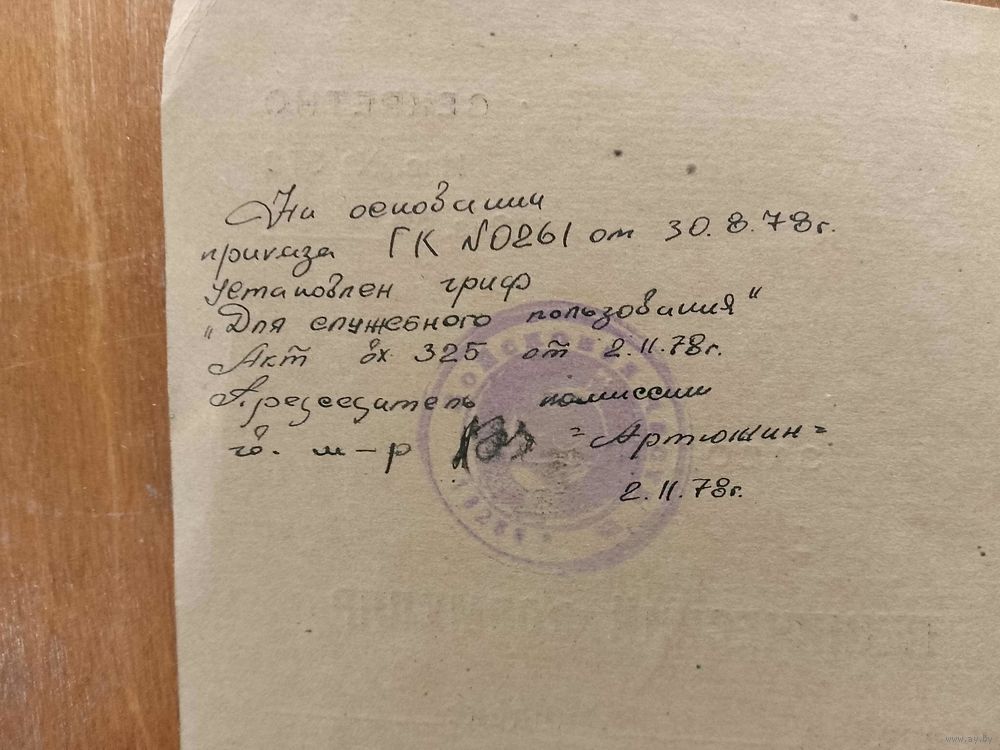 СЕКРЕТНО
На основании
приказа ГК №0261 от 30.8.78г.
установлен гриф
„Для служебного пользования"
Акт вх. 325 от 2.11.78г.
Председатель комиссии
гв. м-р =Артюшин=
2.11.78г.
www.ay.by